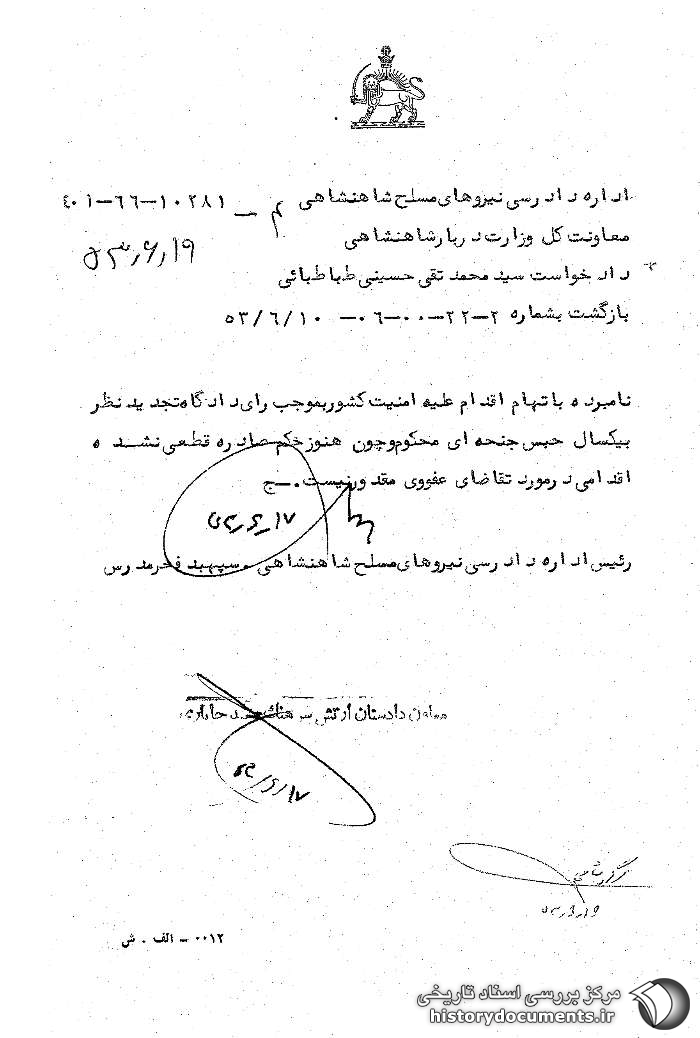 اداره دادرسی نیروهای مسلح شاهنشاهی ۴۰۱-۶۶-۱۰۲۸۱
معاونت کل وزارت دربار شاهنشاهی ۵۳٫۶٫۱۹
دادخواست سید محمد تقی حسینی طباطبائی
بازگشت بشماره ۲-۲۲-۰۰-۰۶- ۵۳/۶/۱۰
نامبرده باتهام اقدام علیه امنیت کشور بموجب رای دادگاه تجدید نظر
بیکسال حبس جنحه ای محکوم و چون هنوز حکم صادره قطعی نشده
اقدامی در مورد تقاضای عفو وی مقدور نیست. ج
۵۳٫۶٫۱۷
رئیس اداره دادرسی نیروهای مسلح شاهنشاهی . سپهبد فخر مدرس
معاون دادستان ارتش سرهنگ
۵۳٫۶٫۱۷
۰۰۱۲ - الف . ش
مرکز بررسی اسناد تاریخی
historydocuments.ir